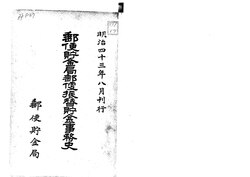 明治四十三年八月刊行
郵便貯金局郵便振替貯金事務史
郵便貯金局